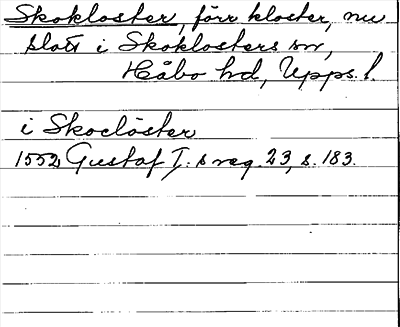 Skokloster, förr kloster, nu
slott i Skoklosters sn,
Håbo hd, Upps. l.
i Skoclöster
1552 Gustaf I:s reg. 23, s. 183.